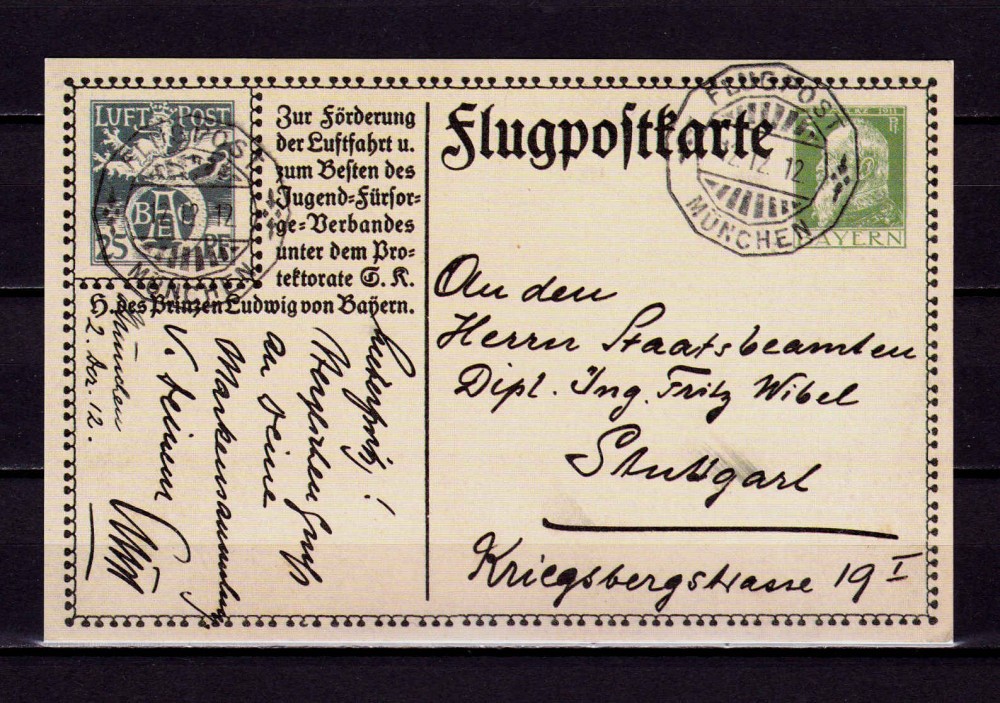 LUFT POST
BAEC
25 PF
Zur Förderung
der Luftfahrt u.
zum Besten des
Jugend-Fürsor-
ge-Verbandes
unter dem Pro-
tektorate S. K.
H. des Prinzen Ludwig von Bayern.
Flugpostkarte
FLUGPOST
12. 12
MÜNCHEN
FLUGPOST
12. 12
MÜNCHEN
1911
BAYERN
An den
Herrn Staatsbeamten
Dipl. Ing. Fritz Wibel
Stuttgart
Kriegsbergstrasse 19 I
München
2. Dez. 12.
Lieber Fritz!
Herzlichen Gruß
an Deine
Markensammlung
v. Deinem